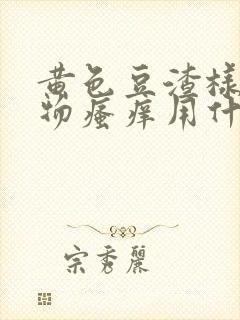 黄色豆渣样
物瘙痒用什
宗秀丽